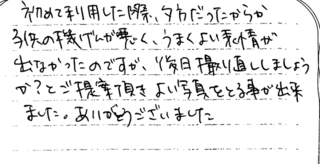 初めて利用した際、夕方だったからか
子供の機げんが悪く、うまくよい表情が
出なかったのですが、後日撮り直ししましょう
か？とご提案頂きよい写真をとる事が出来
ました。ありがとうございました